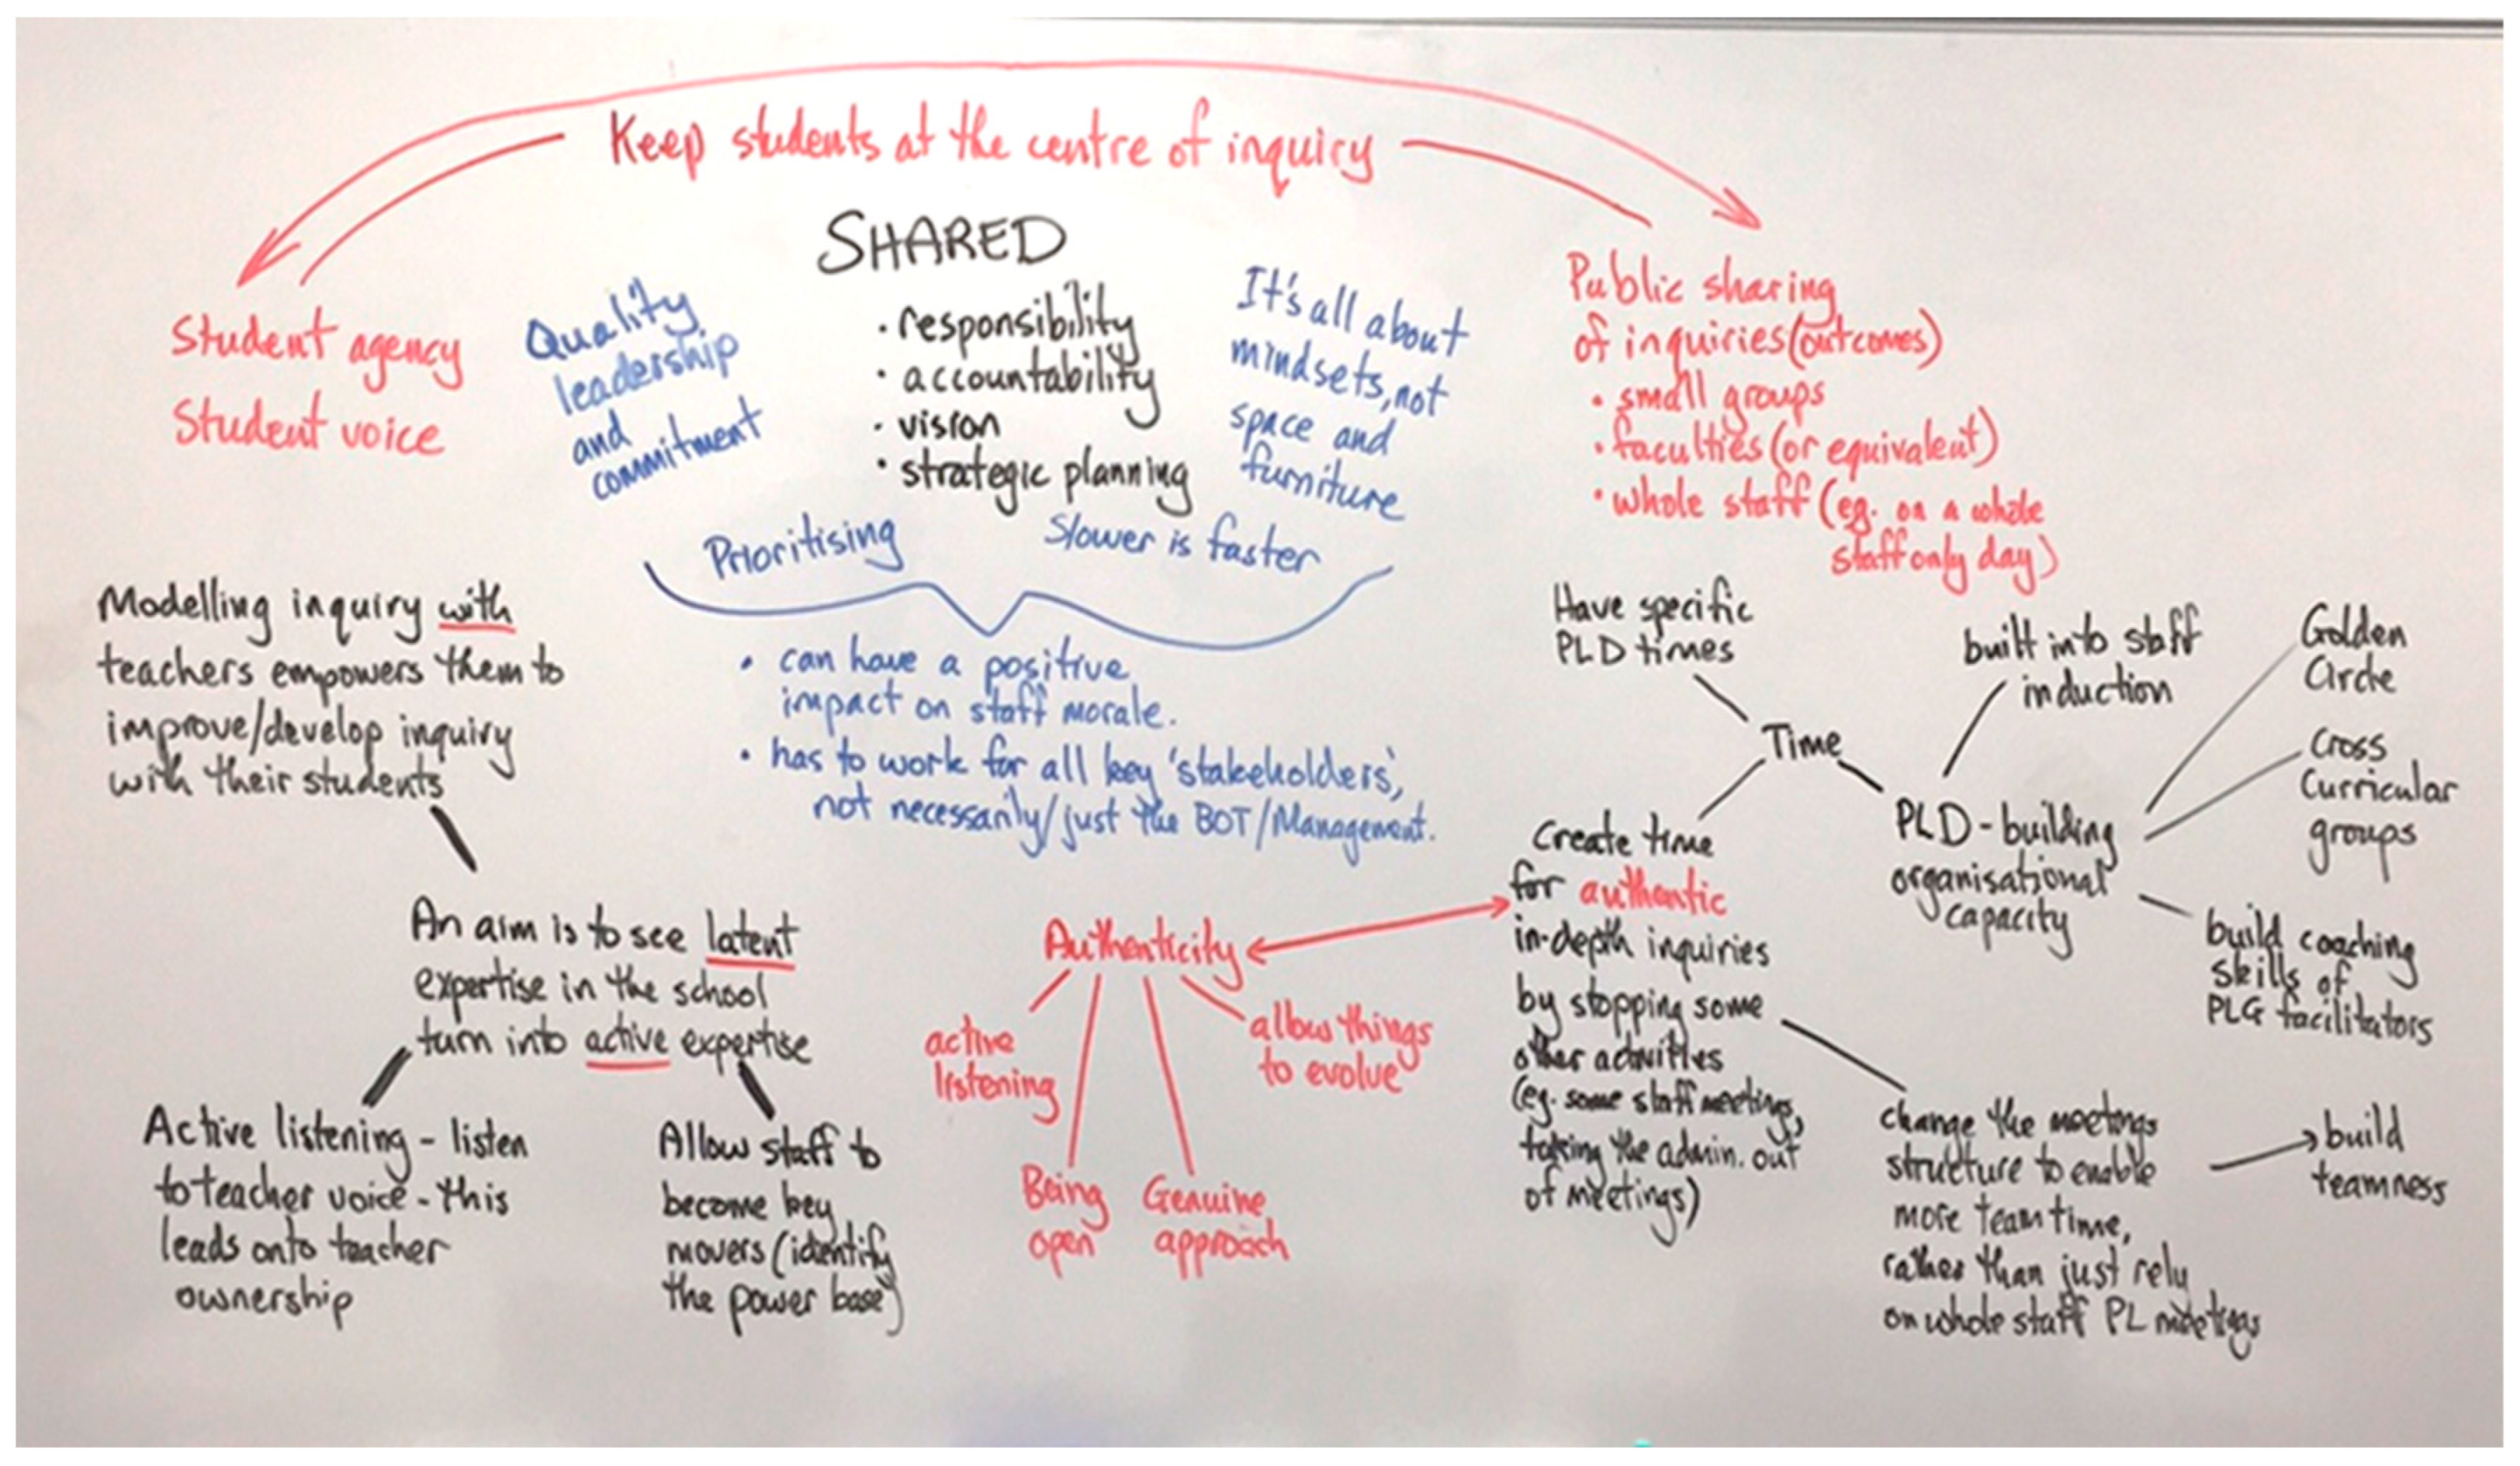 Keep students at the centre of inquiry
SHARED
• responsibility
• accountability
• vision
• strategic planning
Student agency
Student voice
Quality
leadership
and
commitment
It's all about
mindsets, not
space and
furniture
Prioritising
Slower is faster
Public sharing
of inquiries (outcomes)
• small groups
• faculties (or equivalent)
• whole staff (eg. on a whole
staff only day)
• can have a positive
impact on staff morale.
• has to work for all key 'stakeholders',
not necessarily/just the BOT/Management.
Modelling inquiry with
teachers empowers them to
improve/develop inquiry
with their students
An aim is to see latent
expertise in the school
turn into active expertise
Active listening - listen
to teacher voice - this
leads onto teacher
ownership
Allow staff to
become key
movers (identify
the power base)
Authenticity
active
listening
Being
open
Genuine
approach
allow things
to evolve
Have specific
PLD times
Time
Create time
for authentic
in-depth inquiries
by stopping some
other activities
(eg. some staff meetings,
taking the admin. out
of meetings)
built into staff
induction
PLD - building
organisational
capacity
Golden
Circle
Cross
Curricular
groups
build coaching
skills of
PLG facilitators
change the meetings
structure to enable
more team time,
rather than just rely
on whole staff PL meetings
build
teamness